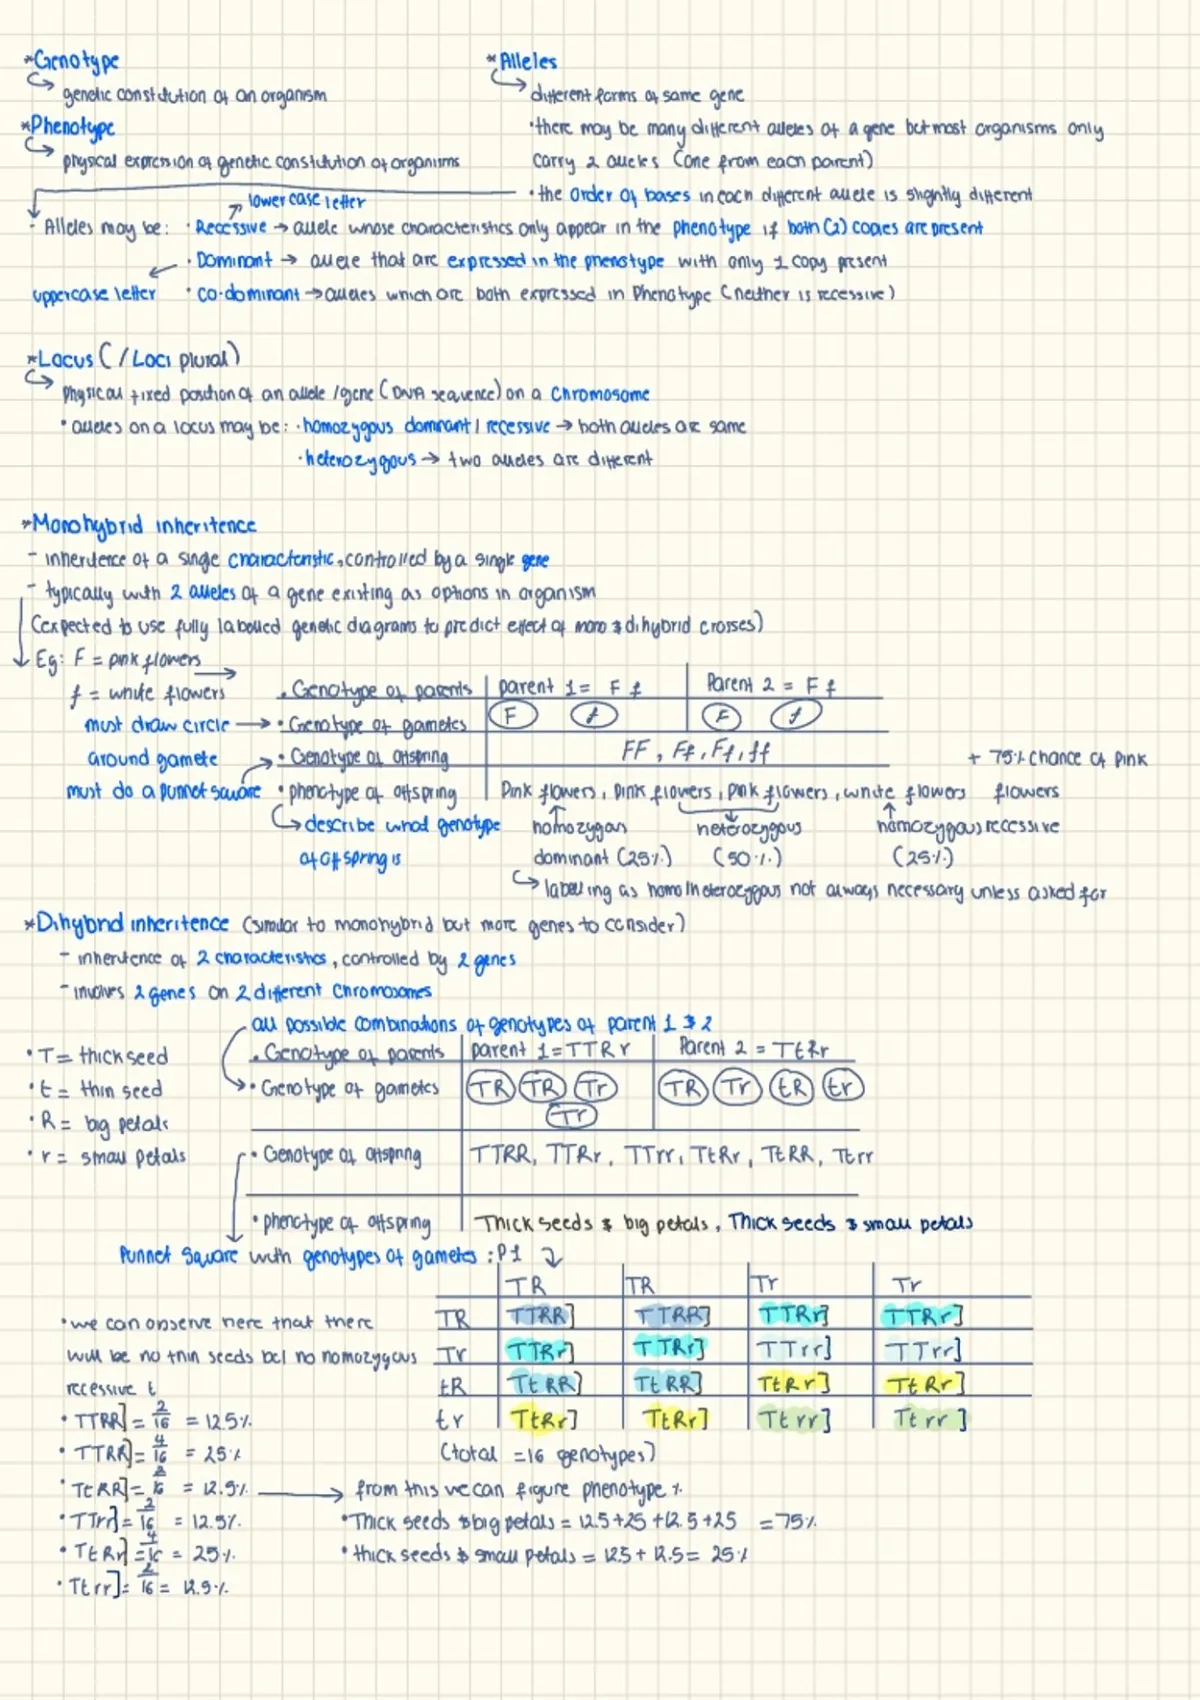 *Genotype
↳ genetic constitution of an organism
*Phenotype
↳ physical expression of genetic constitution of organisms
*Alleles
↳ different forms of same gene
•there may be many different alleles of a gene but most organisms only
carry 2 alleles (one from each parent)
•the order of bases in each different allele is slightly different
lower case letter
- Alleles may be: • Recessive → allele whose characteristics only appear in the phenotype if both (2) copies are present
• Dominant → allele that are expressed in the phenotype with only 1 copy present
uppercase letter • co-dominant → alleles which are both expressed in Phenotype (neither is recessive)
*Locus (/Loci plural)
↳ Physical fixed position of an allele /gene (DNA sequence) on a Chromosome
• alleles on a locus may be: • homozygous dominant / recessive → both alleles are same
• heterozygous → two alleles are different
*Monohybrid inheritence
- inheritence of a single characteristic, controlled by a single gene
- typically with 2 alleles of a gene existing as options in organism
(expected to use fully labelled genetic diagrams to predict effect of mono & dihybrid crosses)
Eg: F = pink flowers
f = white flowers
must draw circle →
around gamete
must do a punnet square
• Genotype of parents | parent 1 = F f | Parent 2 = F f
• Genotype of gametes | F f | F f
• Genotype of offspring | FF, Ff, Ff, ff
+ 75% chance of pink
flowers
• phenotype of offspring | Pink flowers, pink flowers, pink flowers, white flowers
↳ describe what genotype
of offspring is
homozygous
dominant (25%)
heterozygous
(50%)
homozygous recessive
(25%)
↳ labelling as homo/heterozygous not always necessary unless asked for
*Dihybrid inheritence (similar to monohybrid but more genes to consider)
- inheritence of 2 characteristics, controlled by 2 genes
- involves 2 genes on 2 different Chromosomes
all possible combinations of genotypes of parent 1 & 2
• T = thick seed
• t = thin seed
• R = big petals
• r = small petals
• Genotype of parents | parent 1 = TTRr | Parent 2 = TtRr
• Genotype of gametes | TR TR Tr | TR Tr tR tr
Tr
• Genotype of offspring | TTRR, TTRr, TTrr, TtRr, TtRR, Ttrr
• phenotype of offspring | Thick seeds & big petals, Thick seeds & small petals
Punnet Square with genotypes of gametes : P1
TR | TR | Tr | Tr
TR | TTRR] | TTRR] | TTRr] | TTRr]
Tr | TTRr] | TTRr] | TTrr] | TTrr]
tR | TtRR] | TtRR] | TtRr] | TtRr]
tr | TtRr] | TtRr] | Ttrr] | Ttrr]
(total = 16 genotypes)
•we can observe here that there
will be no thin seeds bcl no homozygous
recessive t
• TTRR] = 2/16 = 12.5%
• TTRR] = 4/16 = 25%
• TtRR] = 2/16 = 12.5% → from this we can figure phenotype %
• TTrr] = 2/16 = 12.5%
• TtRr] = 4/16 = 25%
• Ttrr] = 2/16 = 12.5%
•Thick seeds & big petals = 12.5+25+12.5+25 = 75%
•thick seeds & small petals = 12.5 + 12.5 = 25%